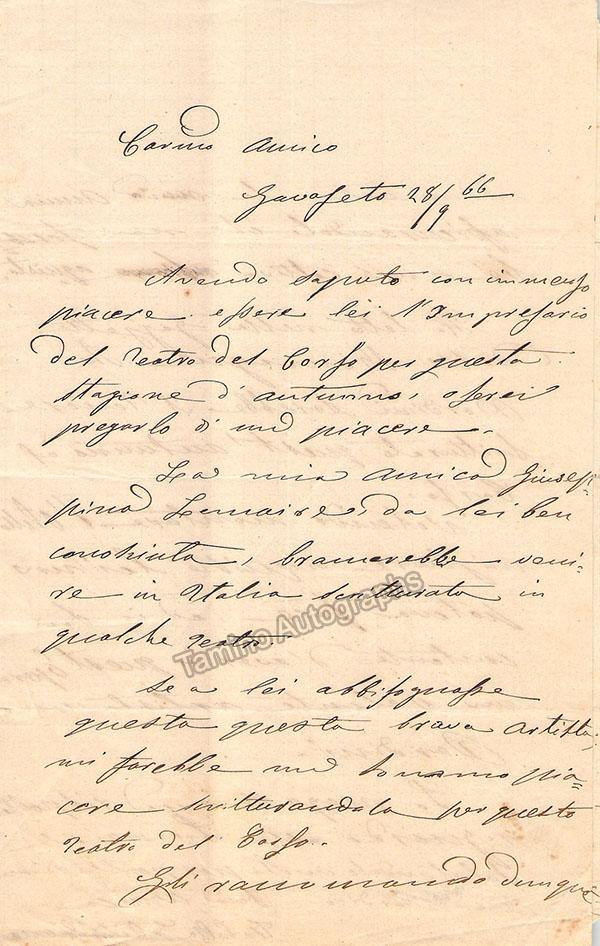 Carmo Amico
Gavaseto 28/9 66
Avendo saputo con immenso
piacere essere lei l'Impresario
del Teatro del Corso per questa
stagione d'autunno, oserei
pregarlo di un piacere.
La mia amica Giusep-
pina Lemaire, da lei ben
conchiuta, bramerebbe veni=
re in Italia scritturata in
qualche Teatro.
Tamino Autographs
Se a lei abbisognasse
questa questa brava artista,
mi farebbe un sommo pia=
cere scritturandola per questo
Teatro del Corso.
Gli raccomando dunque